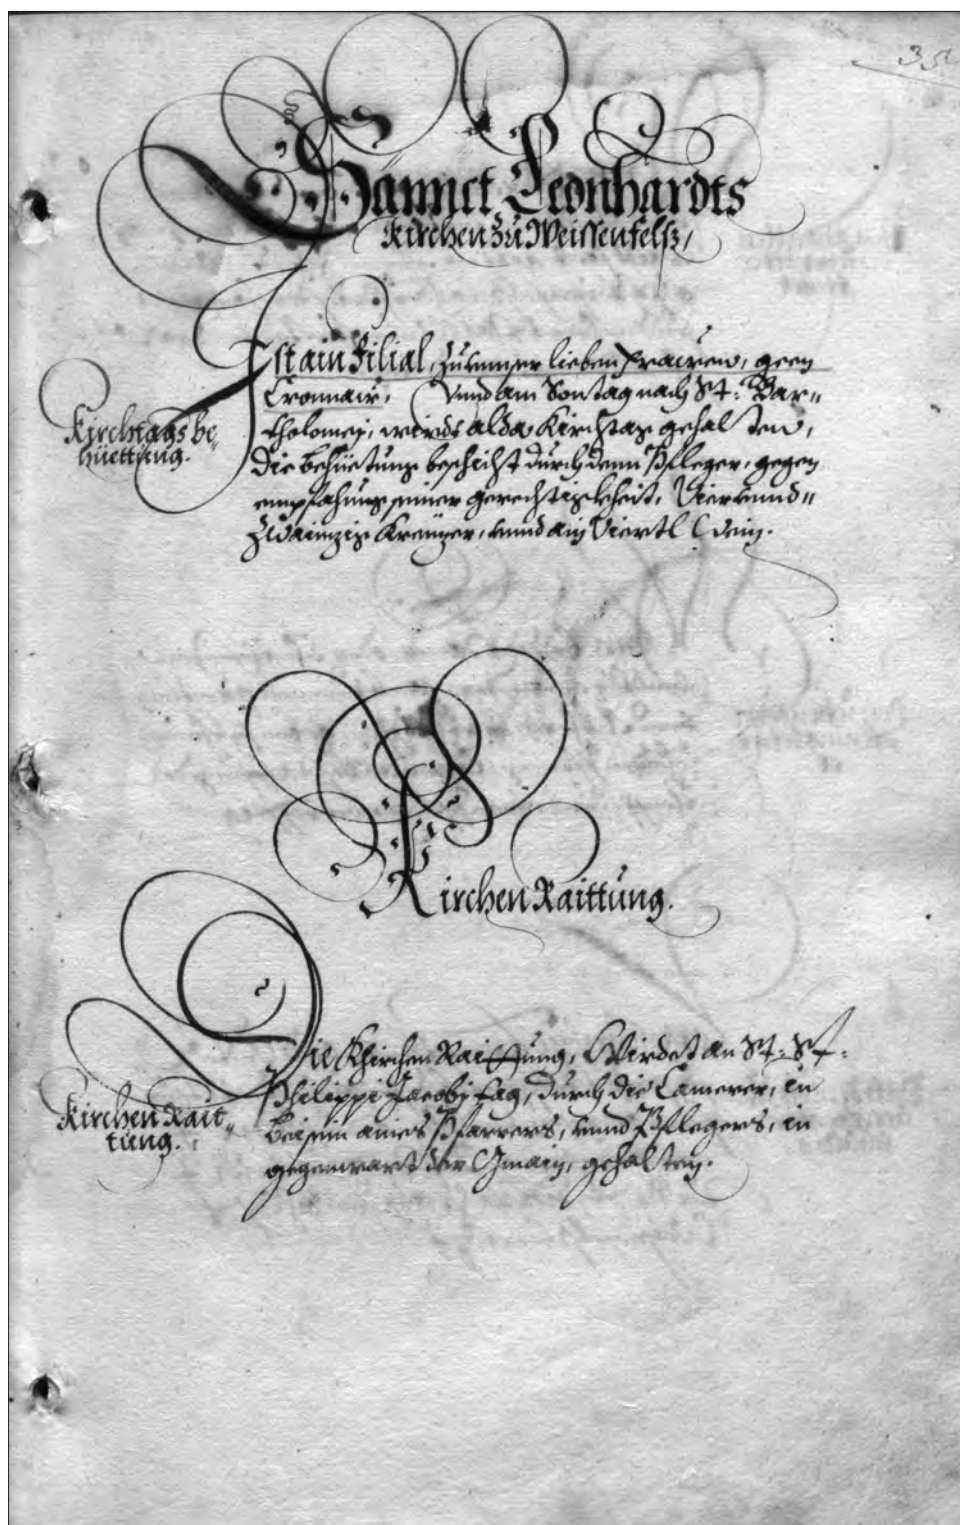 35
Sannct Leonhardts
Kirchen Zu Weissenfelß,
Ist ain Filial, Zu unnser lieben Frauen, geen
Cronnaù, Unnd am Sontag nach St: Bar„
Kirchtags be„
hüettung.
tholomej, wirdt alda Kirchtag gehalten,
Die behüetung beschicht durch denn Pfleger, gegen
empfahung seiner gerechtigkheit, Vierunnd„
Zwainzig Kreüzer, unnd ain Viertl Wein.
Kirchen Raittung.
Die Khirchen Raittung, Wirdet an St: St:
Philippi Jacobj tag, durch die Camerer, in
Kirchen Rait„
tung.
beisein aines Pfarrers, unnd Pflegers, in
gegenwart der Gmain, gehalten.